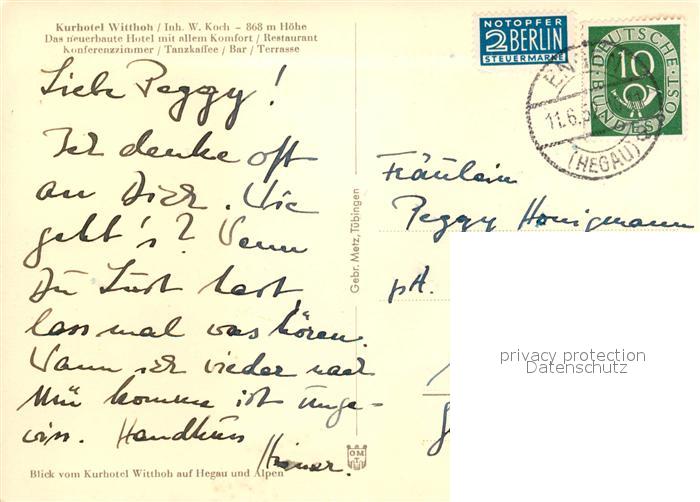 Kurhotel Witthoh / Inh. W. Koch – 868 m Höhe
Das neuerbaute Hotel mit allem Komfort / Restaurant
Konferenzzimmer / Tanzkaffee / Bar / Terrasse
Liebe Peggy!
Ich denke oft
an Dich. Wie
geht's? Wenn
Du Lust hast,
lass mal was hören.
Wann ich wieder nach
Mü komme ist unge-
wiss. Handkuss
Blick vom Kurhotel Witthoh auf Hegau und Alpen
Gebr. Metz, Tübingen
OM
T
NOTOPFER
2 BERLIN
STEUERMARKE
DEUTSCHE BUNDESPOST
10
ENGEN
11.6.5
(HEGAU)
Fräulein
Peggy Honigmann
pA.
privacy protection
Datenschutz